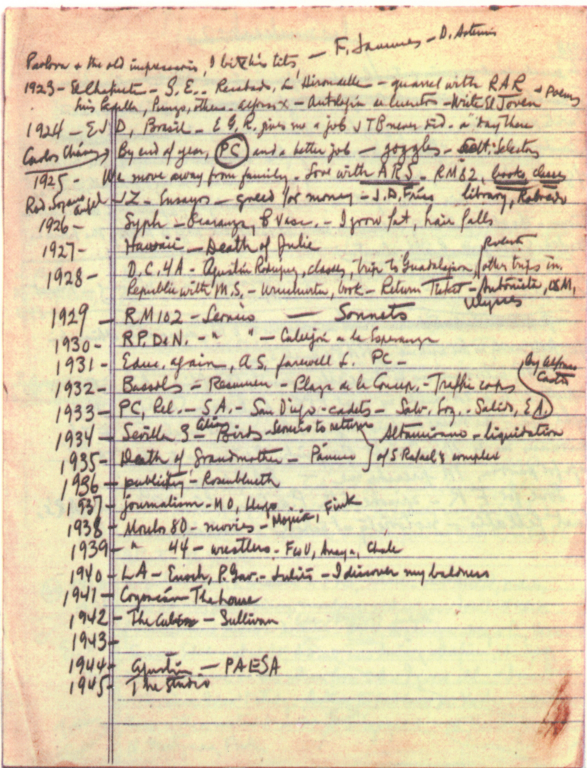 Pavlova & the old impresario, I bite his tits — F. Jammes — D. Artemio
1923 — El Chafirete — S. E. — Recitado, La Hirondelle — quarrel with RAR & poems
his Capilla, others — Alfonso X — Antología de Cuentos — Write El Joven
1924 — E y D, Brasil — E G R. gives me a job J T B never did — a day there
Carlos Chávez By end of year, PC and a better job — goggles — Selectos
1925 — We move away from family — Love with A R S. — RM 82, books close
J Z — Ensayos — greed for money — J. D. Frías library, Robredo
1926 — Syph — B Vasc. — I grow fat, hair falls
1927 — Hawaii — Death of Julie
1928 — D. C. 4A — Aquilán Rodríguez, classes, trip to Guadalajara, other trips in
Republic with M. S. — Winchester, Cook — Return Ticket — Antonieta, D & M,
Ulysses
1929 — RM 102 — Servicio — Sonnets
1930 — R. P. De N. — " " — Callejón de la Esperanza
1931 — Educ. again, A S. farewell L. PC —
1932 — Bassols — Resumen — Plaza de la Concep. — Traffic cops
by Alfonso
Castro
1933 — PC, Rel. — S. A. — San Diego — cadets — Salv. Coq. — Salido, E A
1934 — Sevilla 3 — Birds — Service to return Altamirano — liquidation
1935 — Death of Grandmother — Pánuco of S Rafael & complex
1936 — publicity — Rosenblueth
1937 — journalism — M O, Hugo
1938 — Morelos 80 — movies — Mojica, Fink
1939 — " 44 — wrestlers — F & U, Anaya, Chale
1940 — L A — Enoch, P. Gav. — Julito — I discover my baldness
1941 — Coyoacán — The house
1942 — The Cubes — Sullivan
1943 —
1944 — Agustín — PAESA
1945 — The Studio